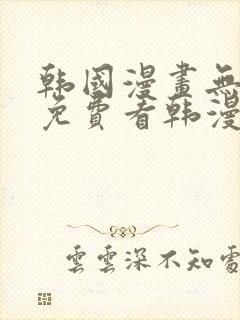 韩國漫畫無
免費看韩漫
雲雲深不知處